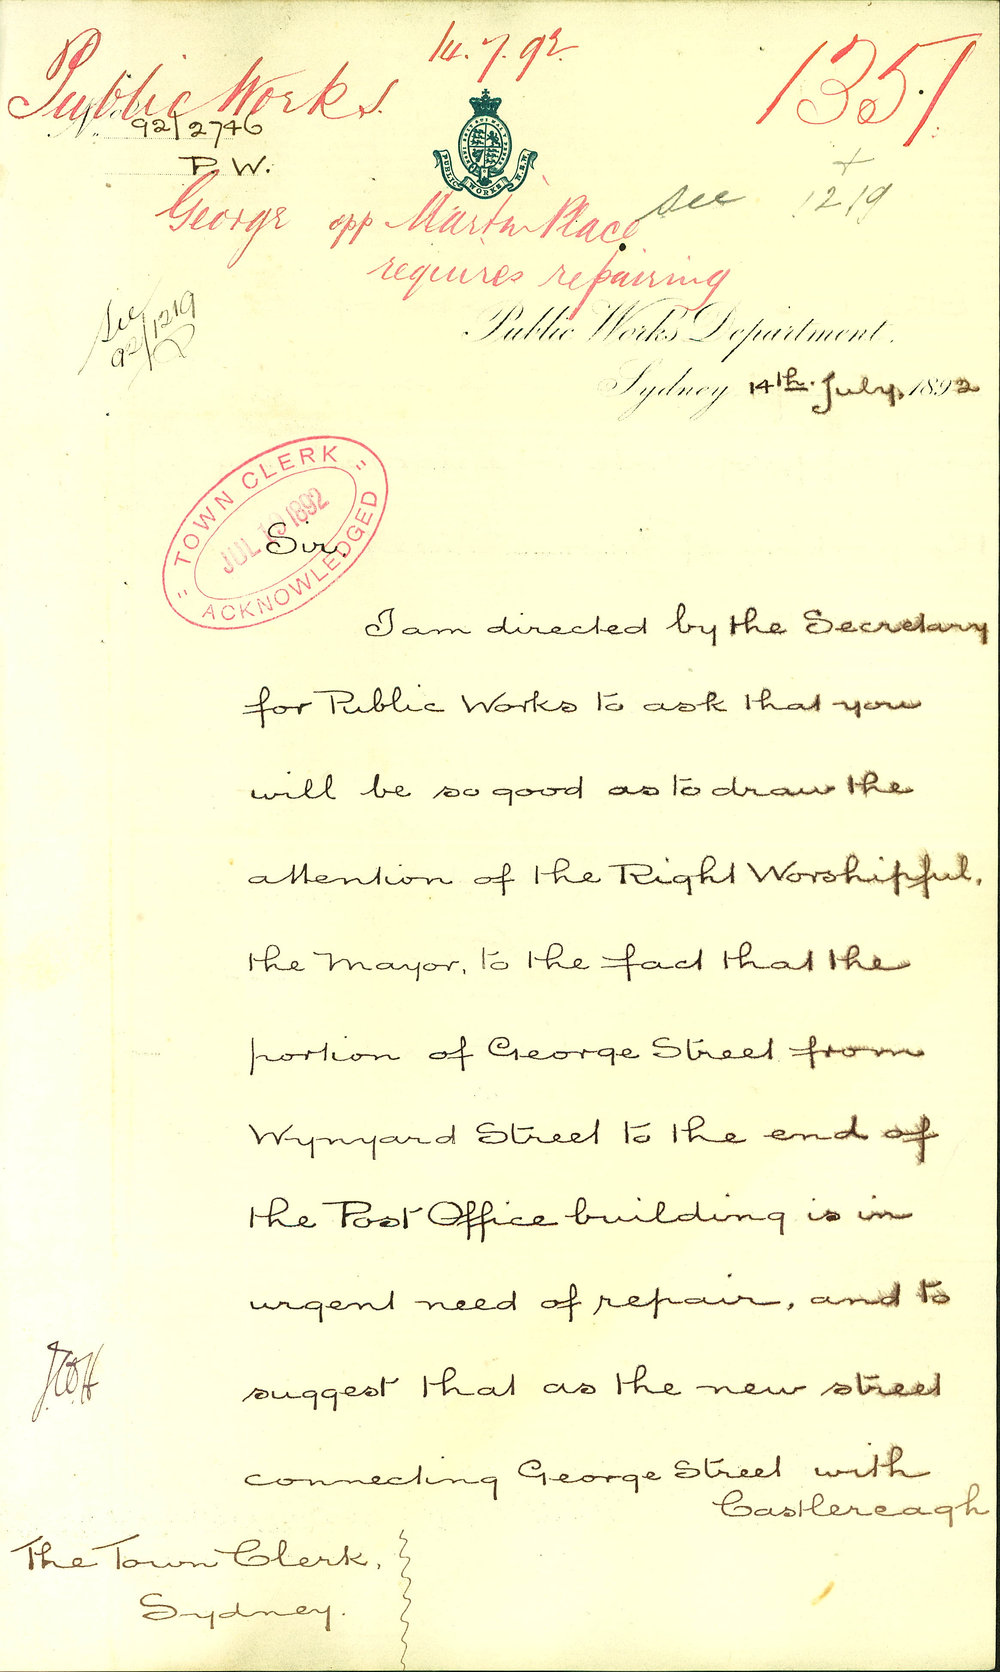 14.7.92
Public Works.
1351
92/2746
P.W.
PUBLIC WORKS N.S.W.
George opp Martin Place
see 1219
requires repairing
See
92/1219
Public Works Department.
Sydney 14th. July, 1892
" TOWN CLERK "
JUL 19 1892
ACKNOWLEDGED
Sir,
I am directed by the Secretary
for Public Works to ask that you
will be so good as to draw the
attention of the Right Worshipful,
the Mayor, to the fact that the
portion of George Street from
Wynyard Street to the end of
the Post Office building is in
urgent need of repair, and to
suggest that as the new street
connecting George Street with
Castlereagh
The Town Clerk,
Sydney.